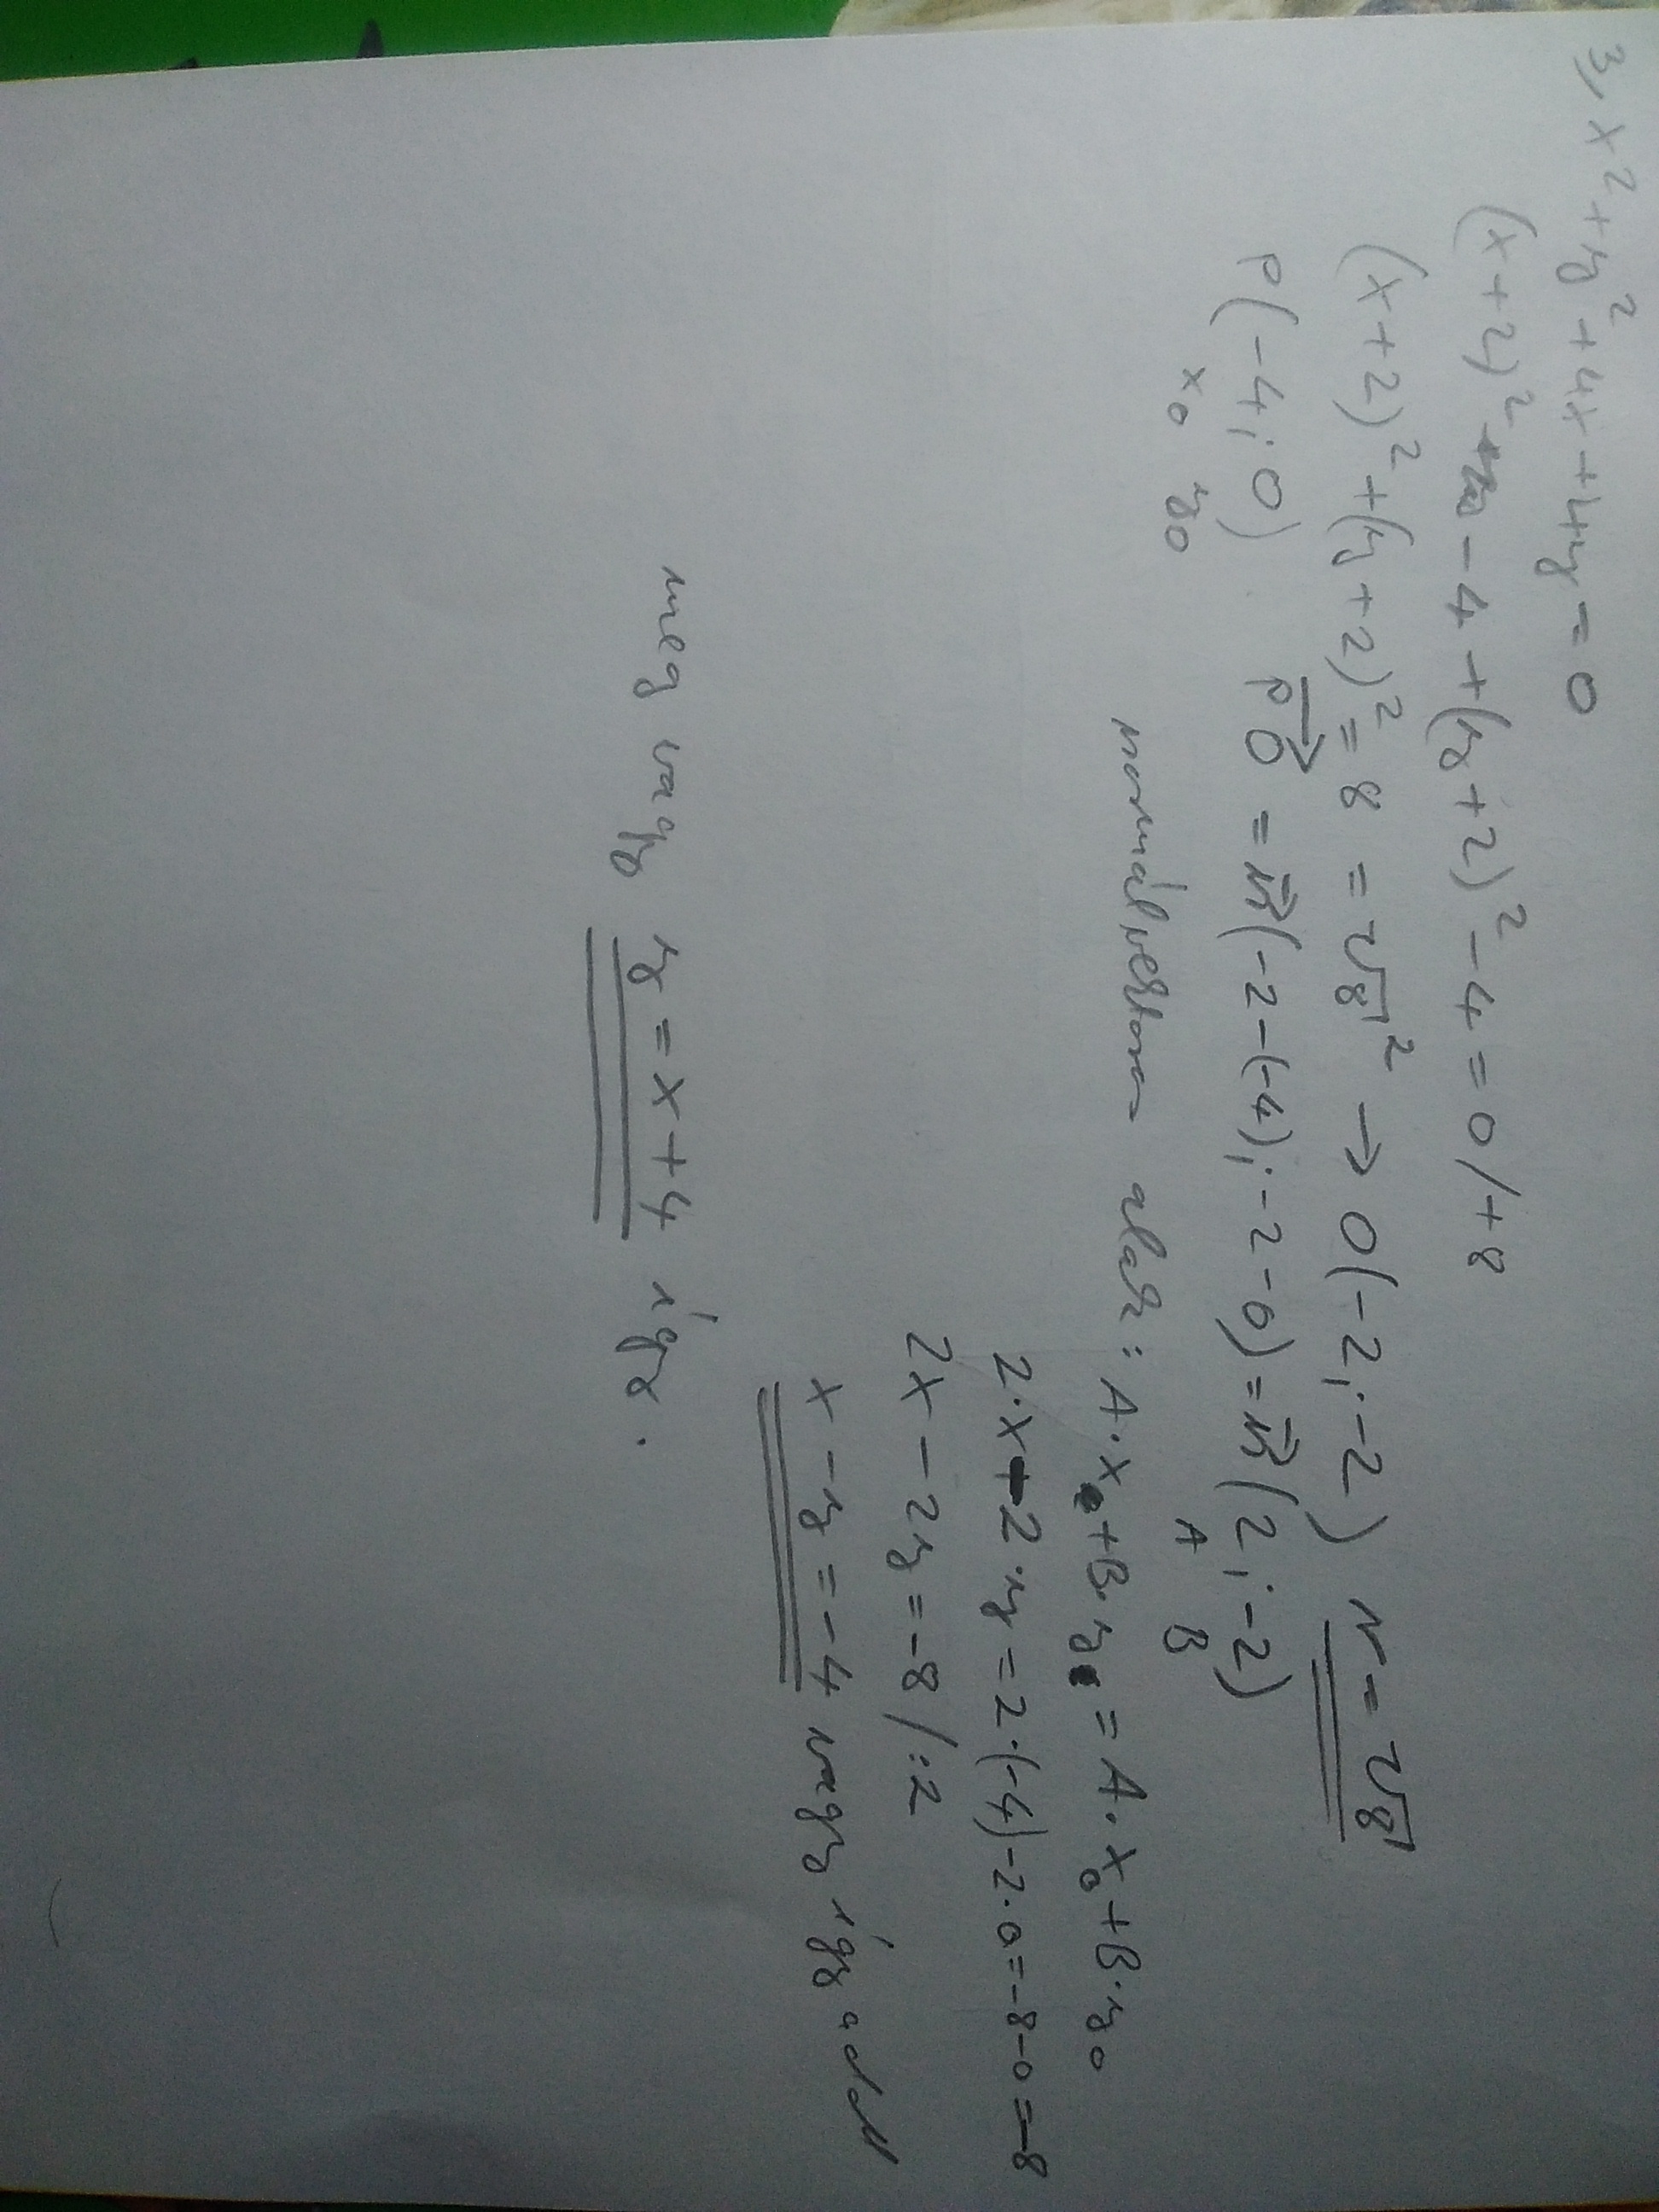 3, x² + y² + 4x + 4y = 0
(x+2)² - 4 + (y+2)² - 4 = 0 /+8
(x+2)² + (y+2)² = 8 = √8² → O(-2;-2) r = √8
P(-4;0) PO⃗ = n⃗(-2-(-4);-2-0) = n⃗(2;-2)
x₀ y₀ A B
normálvektoros alak: A·x + B·y = A·x₀ + B·y₀
2·x + -2·y = 2·(-4) -2·0 = -8-0 = -8
2x - 2y = -8 /:2
x - y = -4 vagy így adod
meg vagy y = x+4 így.